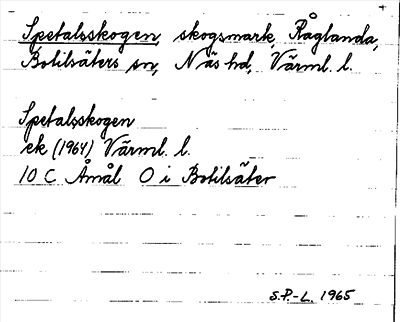 Spetalsskogen, skogsmark, Råglanda,
Botilsäters sn, Näs hd, Värml. l.
Spetalsskogen
ek (1964) Värml. l.
10 C Åmål O i Botilsäter
S.P.-L. 1965